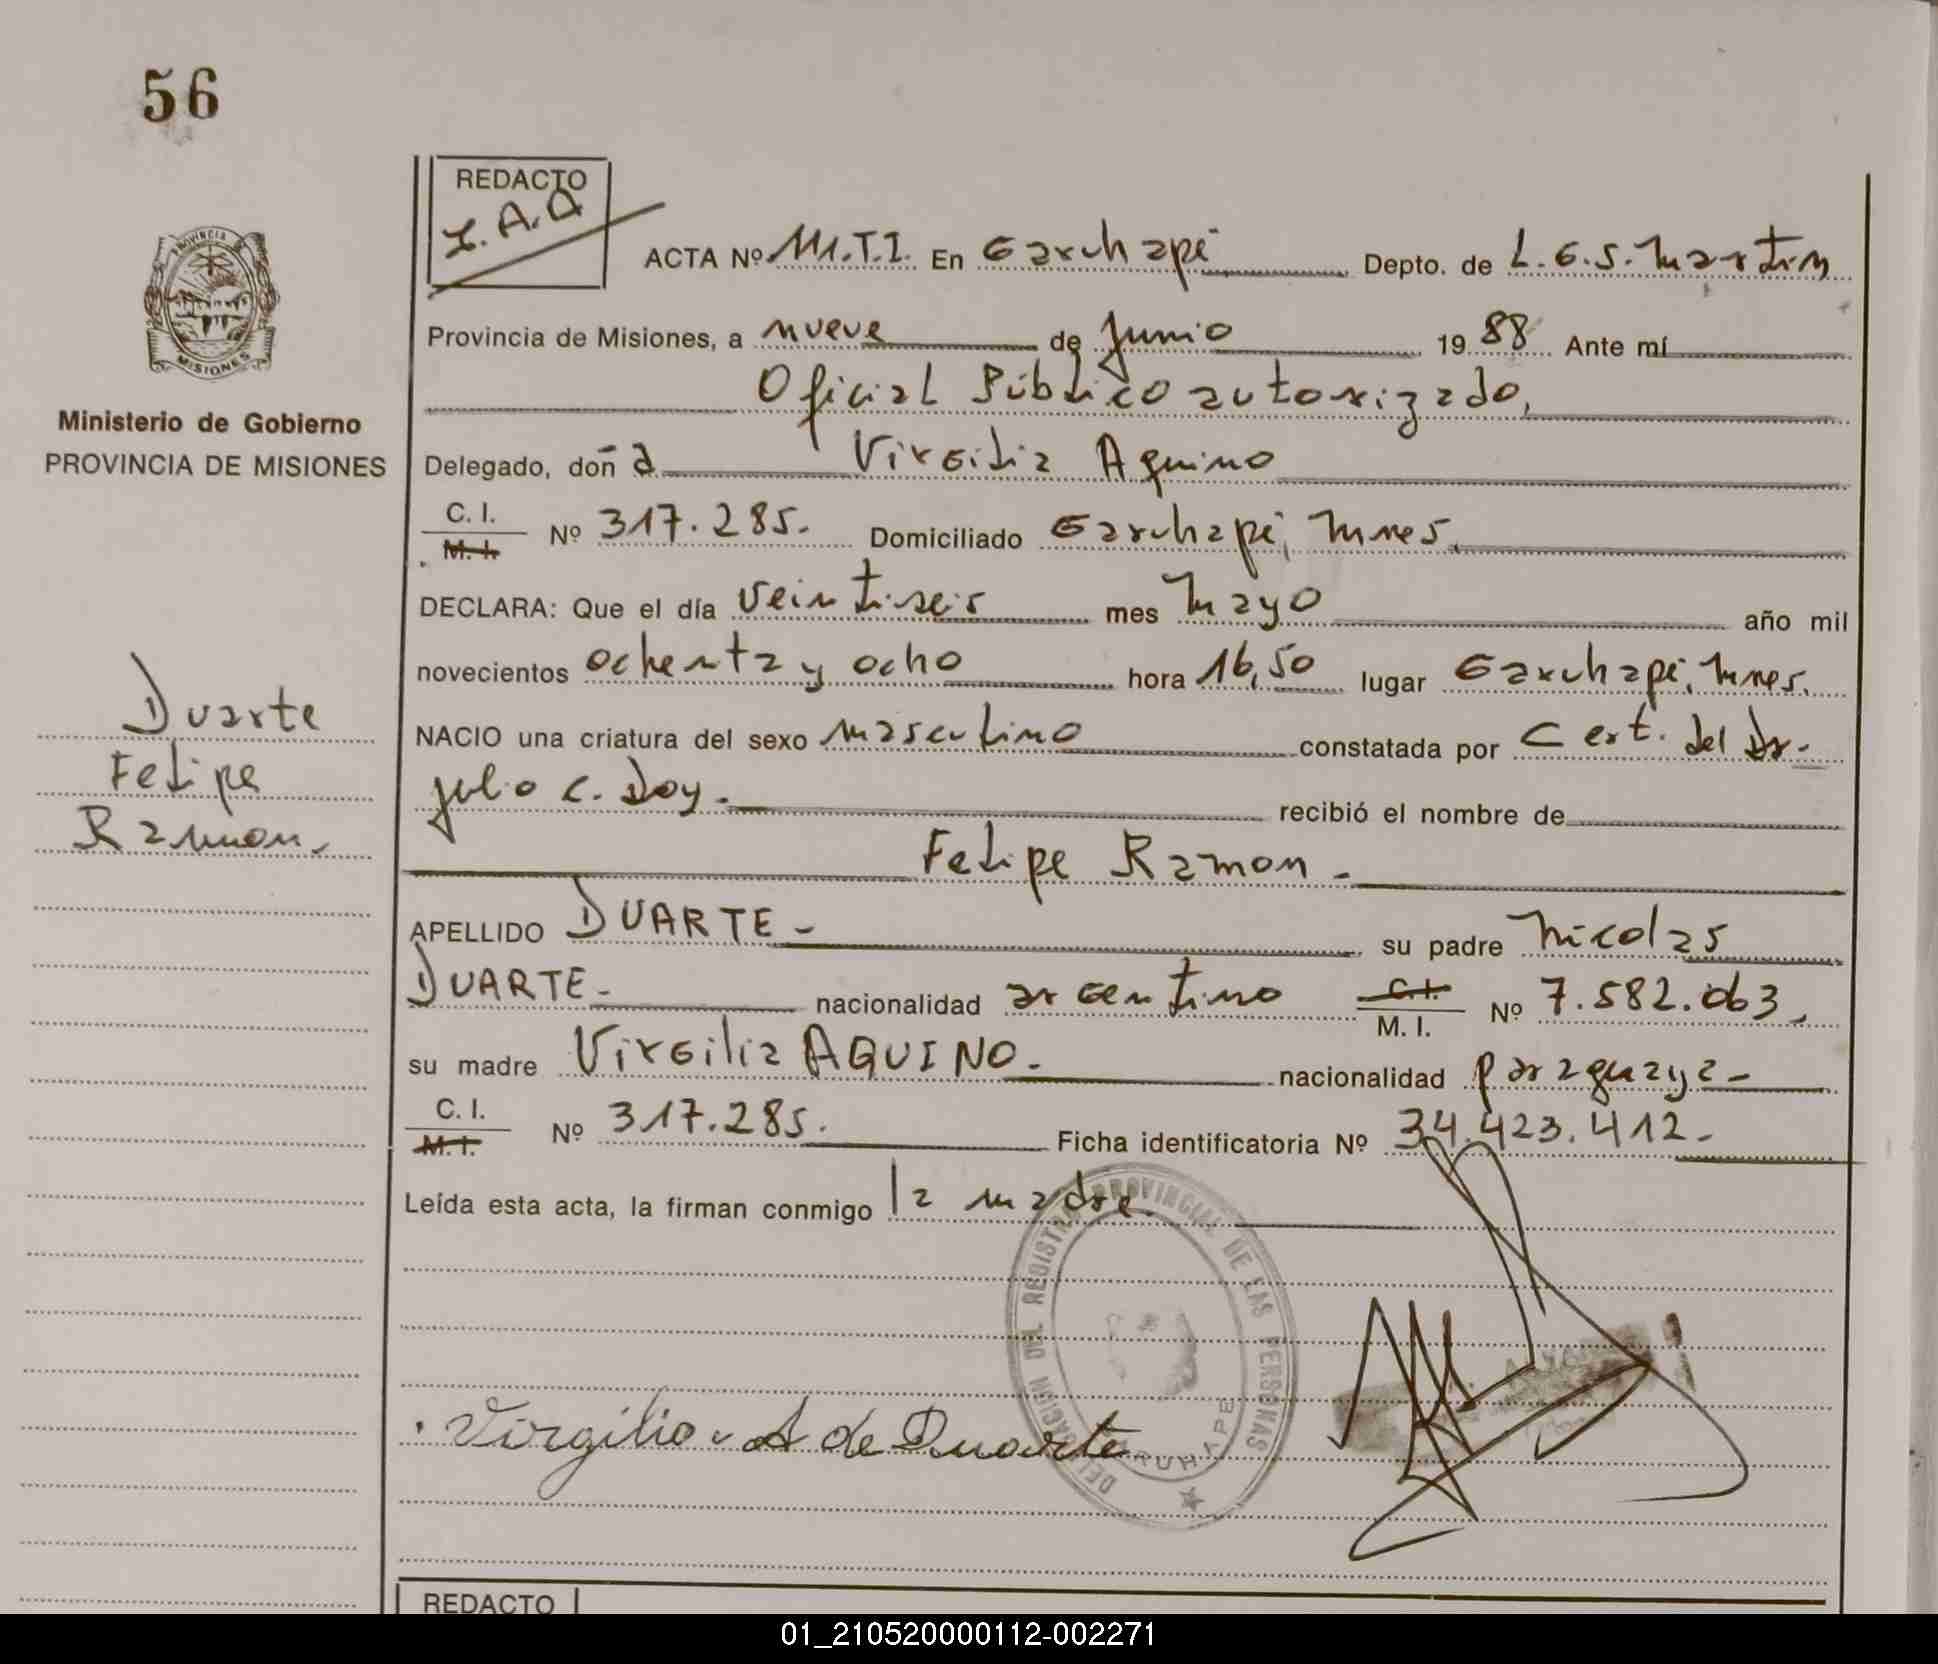 56
REDACTO
I.A.Q
ACTA Nº 111.T.I. En Garuhapé Depto. de L.G.S.Martin
Provincia de Misiones, a nueve de Junio 19 88 Ante mí
Oficial Público autorizado,
PROVINCIA
MISIONES
Ministerio de Gobierno
PROVINCIA DE MISIONES
Delegado, doña Virgilia Aquino
C. I.
M. I.
Nº 317.285. Domiciliado Garuhapé, Mnes.
DECLARA: Que el día veintiseis mes Mayo año mil
novecientos ochenta y ocho hora 16,50 lugar Garuhapé, Mnes.
Duarte
Felipe
Ramon.
NACIO una criatura del sexo masculino constatada por Cert. del Dr.
Julio C. Doy. recibió el nombre de
Felipe Ramon.
APELLIDO DUARTE su padre Nicolas
DUARTE nacionalidad argentino C. I.
M. I. Nº 7.582.063,
su madre Virgilia AQUINO. nacionalidad paraguaya
C. I.
M. I.
Nº 317.285. Ficha identificatoria Nº 34.423.412
Leída esta acta, la firman conmigo la madre.
DELEGACION DEL REGISTRO PROVINCIAL DE LAS PERSONAS
GARUHAPE
Virgilia A de Duarte
REDACTO
01_210520000112-002271